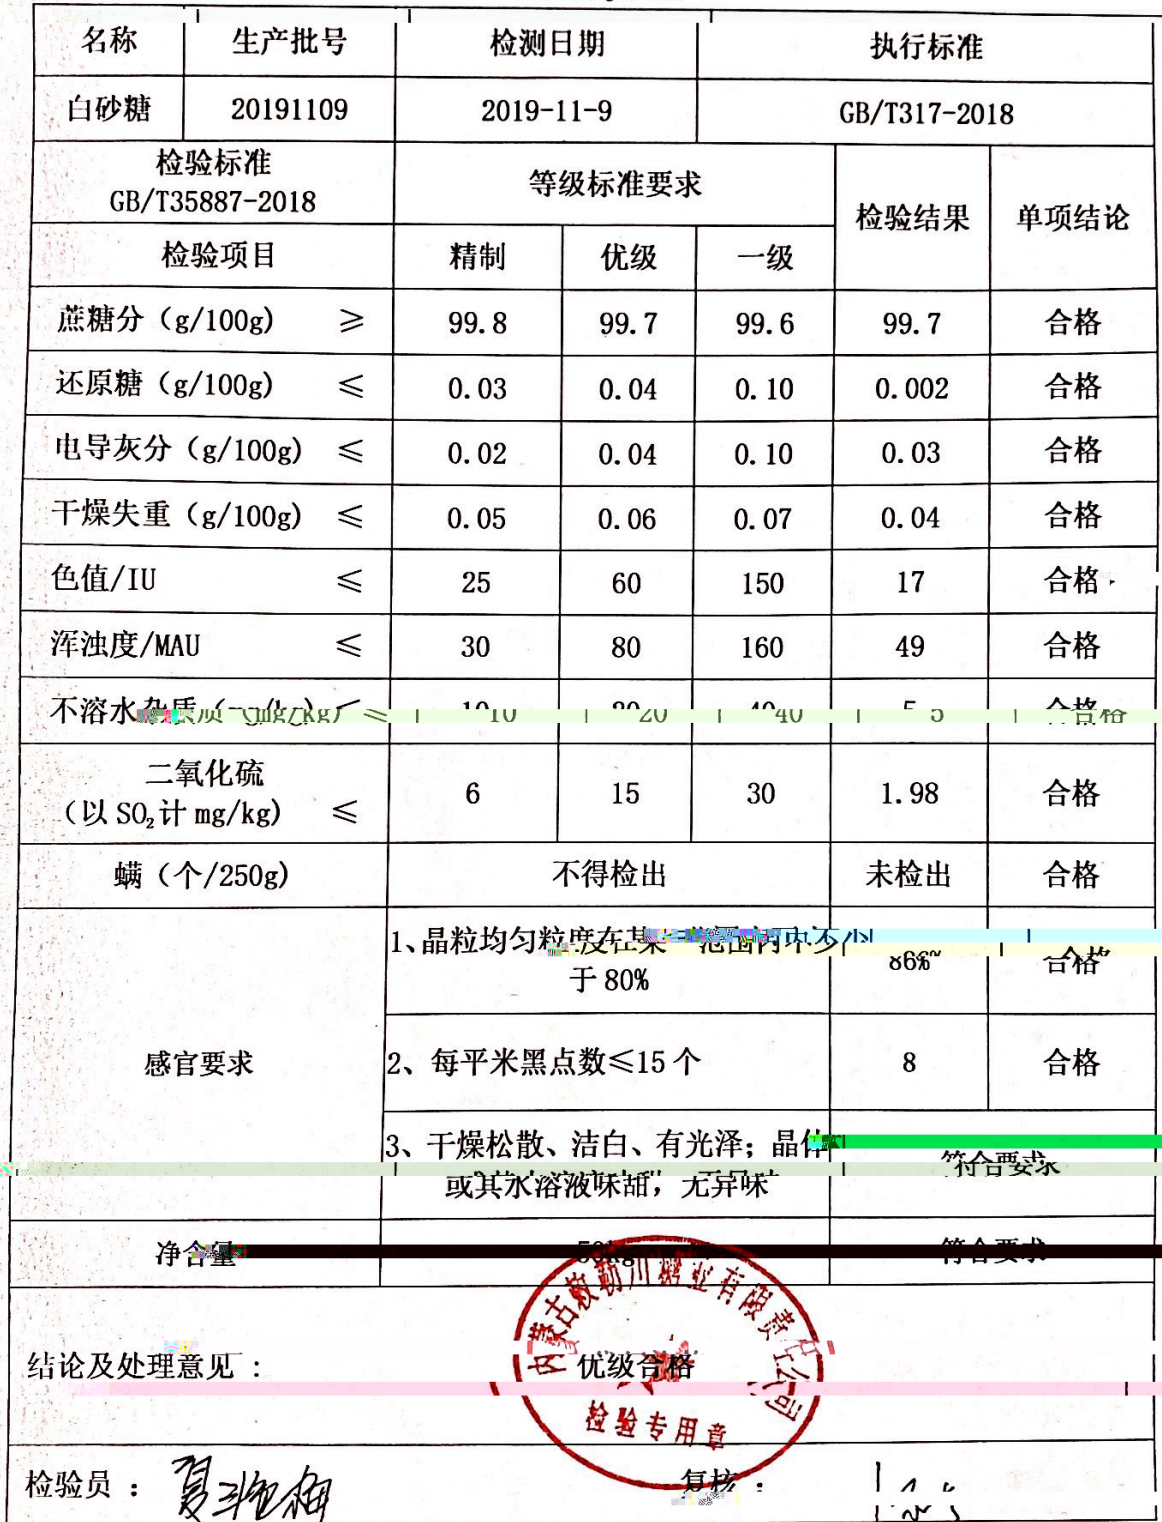 名称 生产批号 检测日期 执行标准
白砂糖 20191109 2019-11-9 GB/T317-2018
检验标准
GB/T35887-2018
等级标准要求 检验结果 单项结论
检验项目 精制 优级 一级
蔗糖分（g/100g） ≥ 99.8 99.7 99.6 99.7 合格
还原糖（g/100g） ≤ 0.03 0.04 0.10 0.002 合格
电导灰分（g/100g） ≤ 0.02 0.04 0.10 0.03 合格
干燥失重（g/100g） ≤ 0.05 0.06 0.07 0.04 合格
色值/IU ≤ 25 60 150 17 合格
浑浊度/MAU ≤ 30 80 160 49 合格
不溶水杂质（mg/kg）≤ 10 20 40 5 合格
二氧化硫
（以SO₂计 mg/kg） ≤ 6 15 30 1.98 合格
螨（个/250g） 不得检出 未检出 合格
感官要求
1、晶粒均匀粒度在某一范围内不少
于80%
86% 合格
2、每平米黑点数≤15个 8 合格
3、干燥松散、洁白、有光泽；晶体
或其水溶液味甜，无异味
符合要求
净含量 50kg 符合要求
内蒙古敕勒川糖业有限责任公司
结论及处理意见： 优级合格
检验专用章
检验员： 复核：